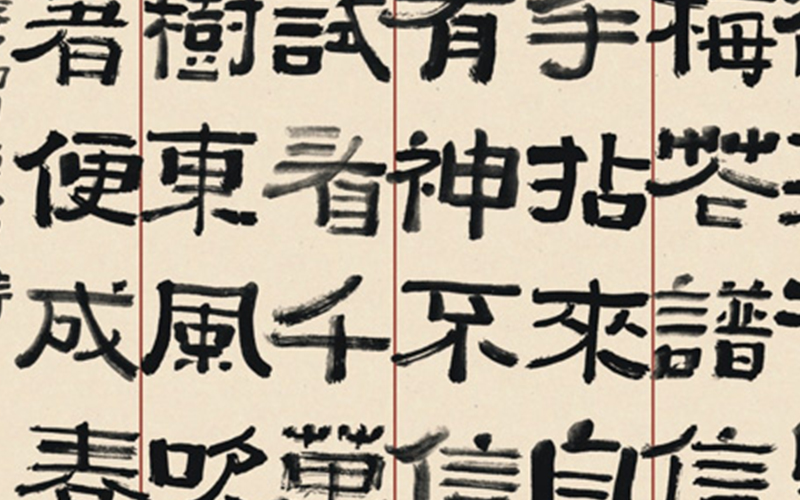 梅花譜信
手拈來自
有神不信
試看千萬
樹東風吹
著便成春